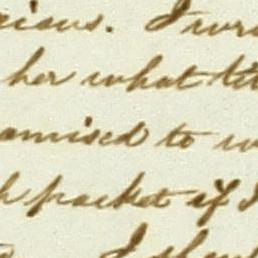 ious. I wr
her what lit
omised to w
h packet if I
I sh